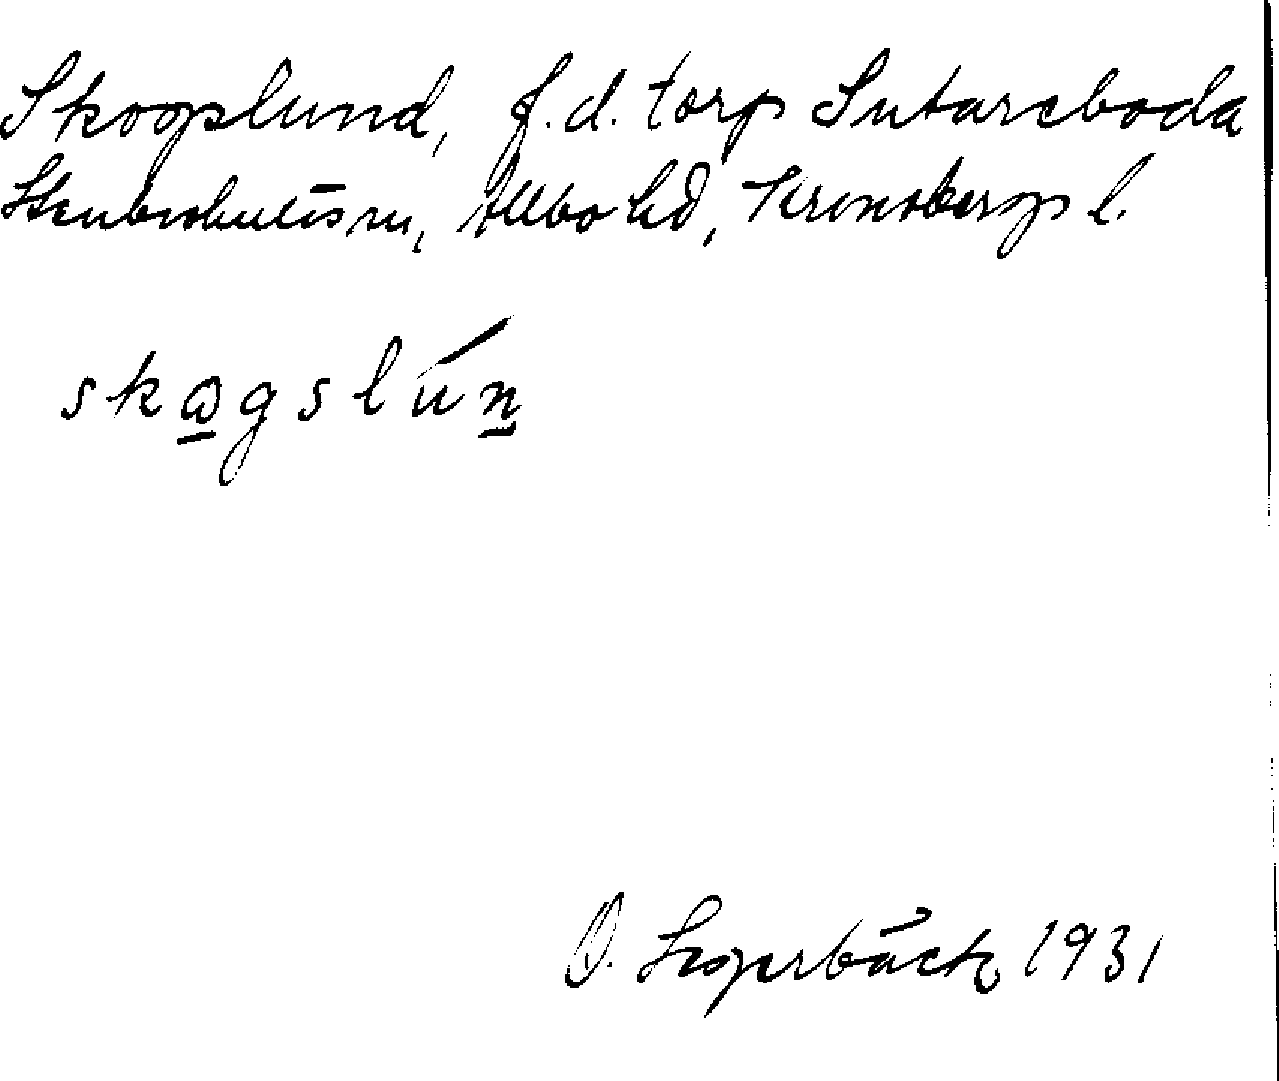 Skogslund, f.d. torp Sutareboda
Stenbrohults sn, Allbo hd, Kronobergs l.
skɷgslún
O. Sigerbäck 1931